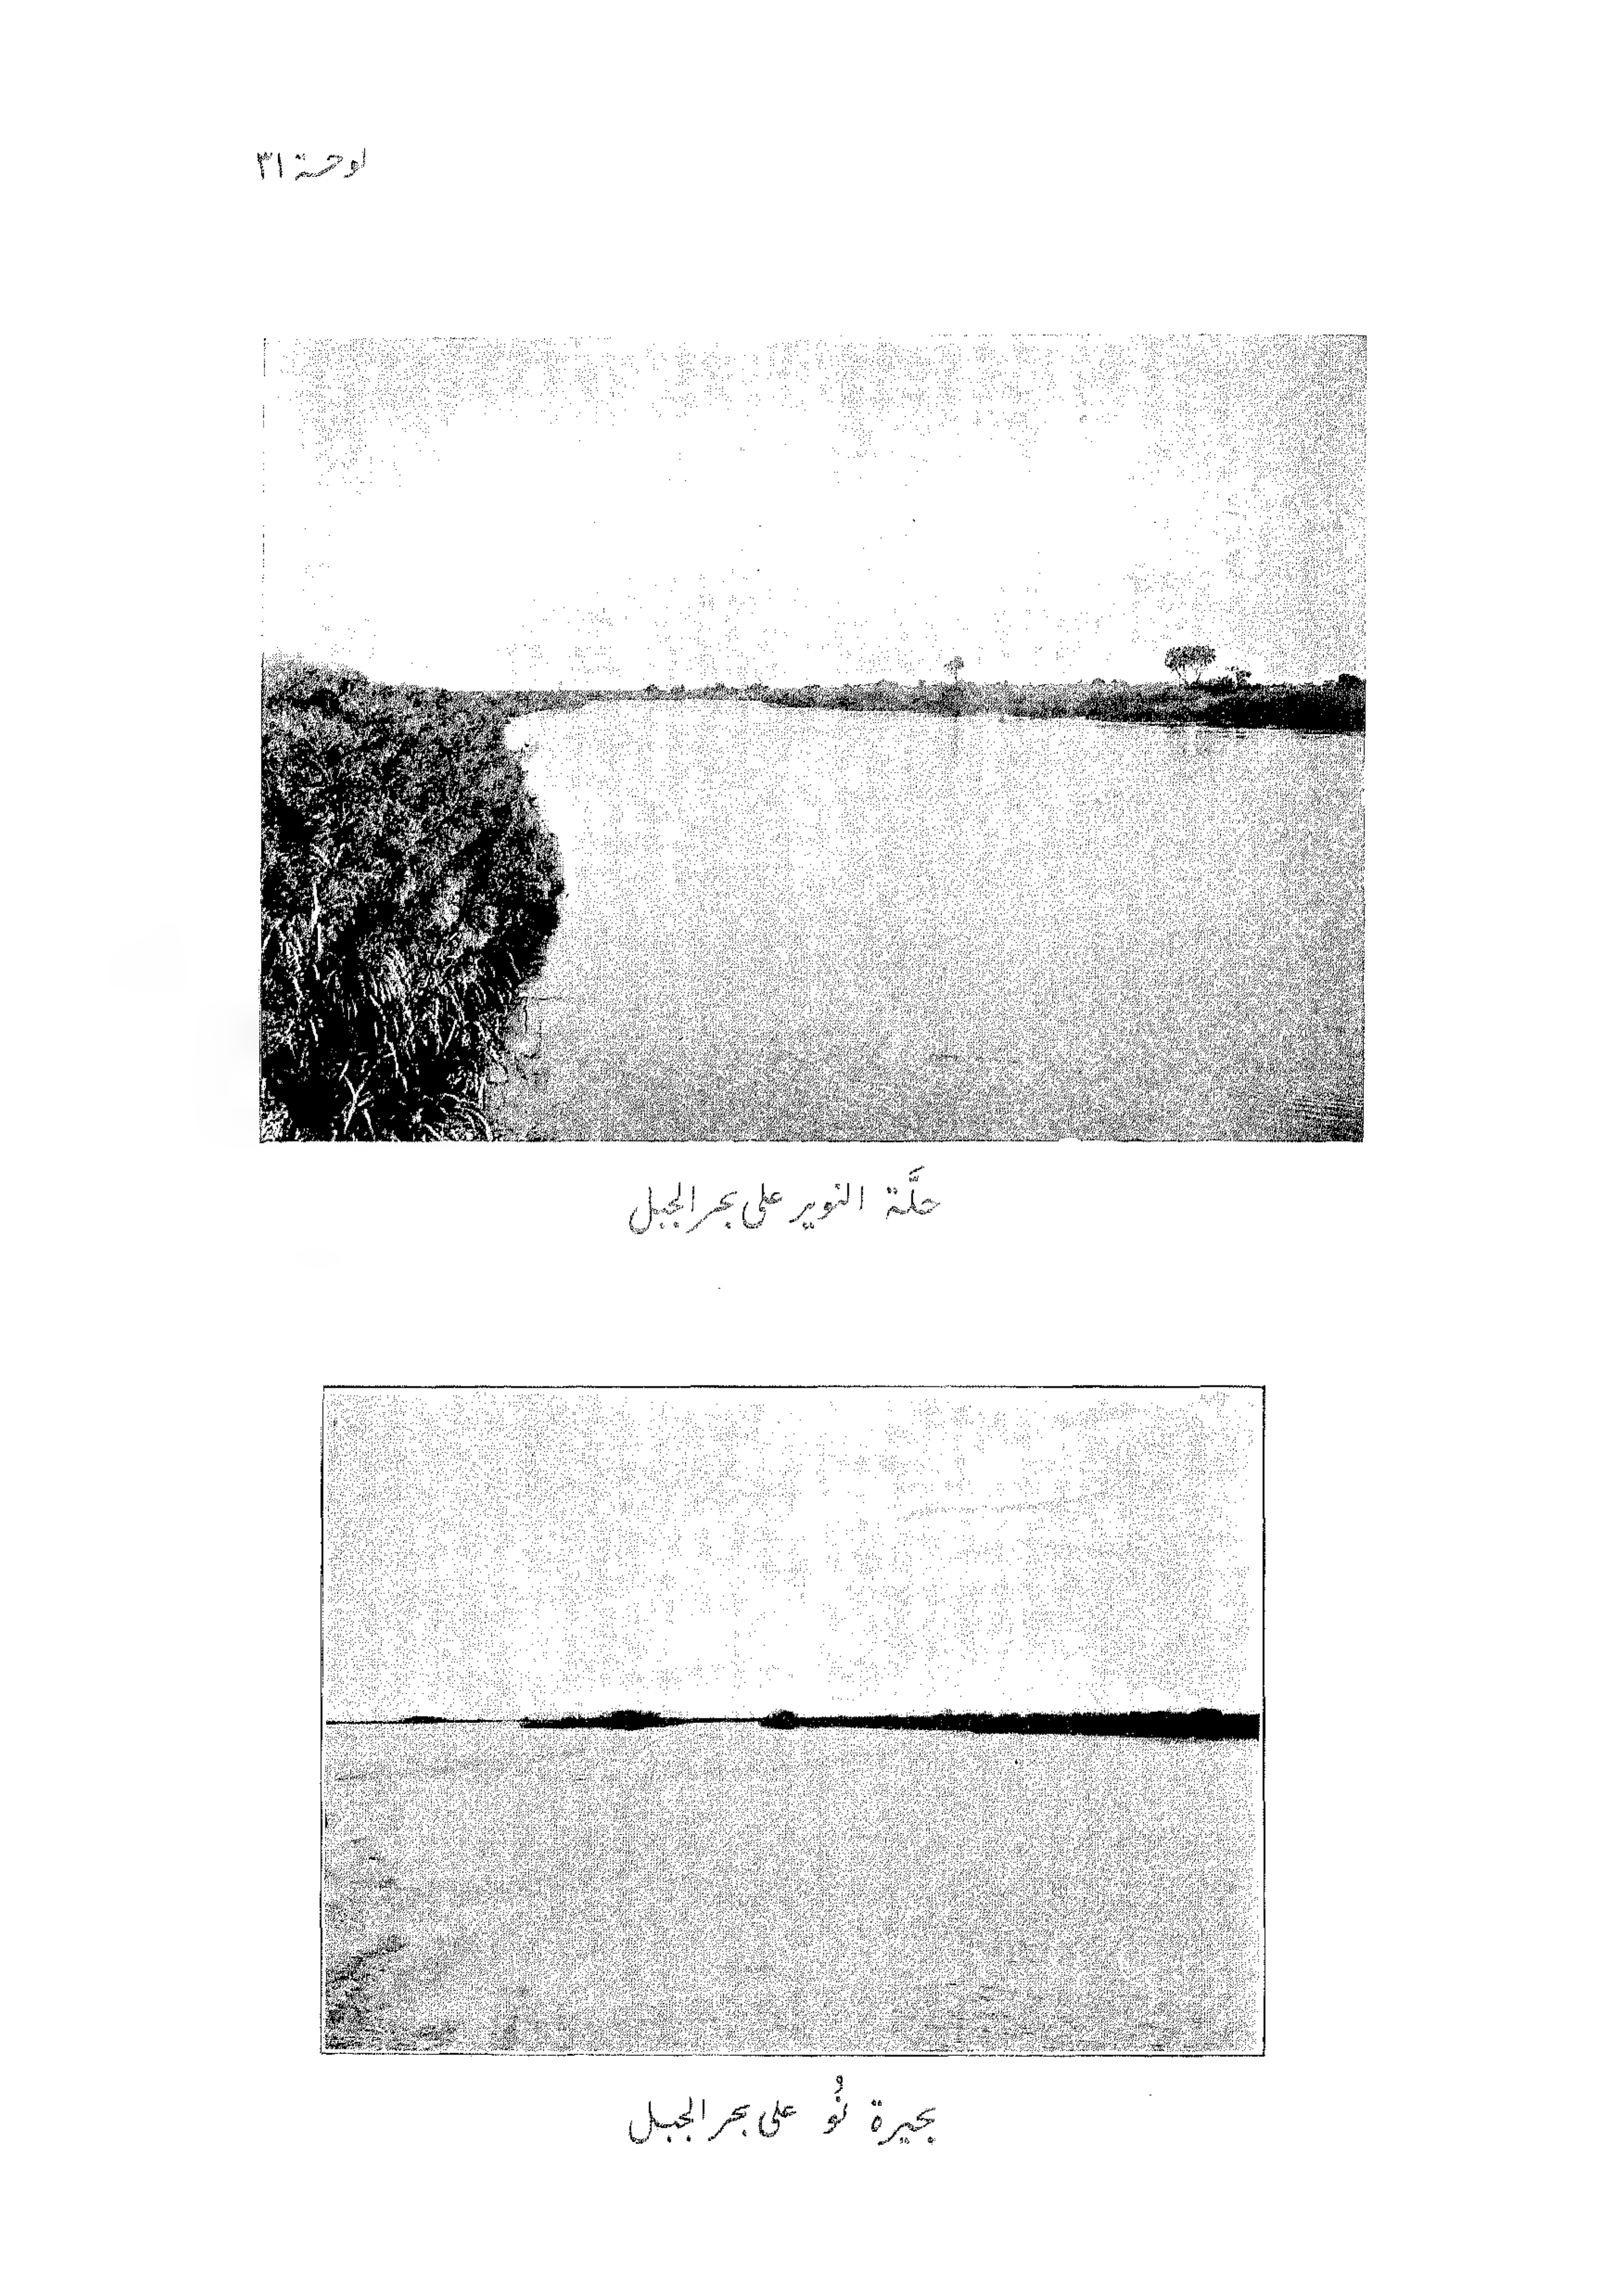 لوحة ٣١
حلَّة النوير على بحر الجبل
بحيرة نُو على بحر الجبل